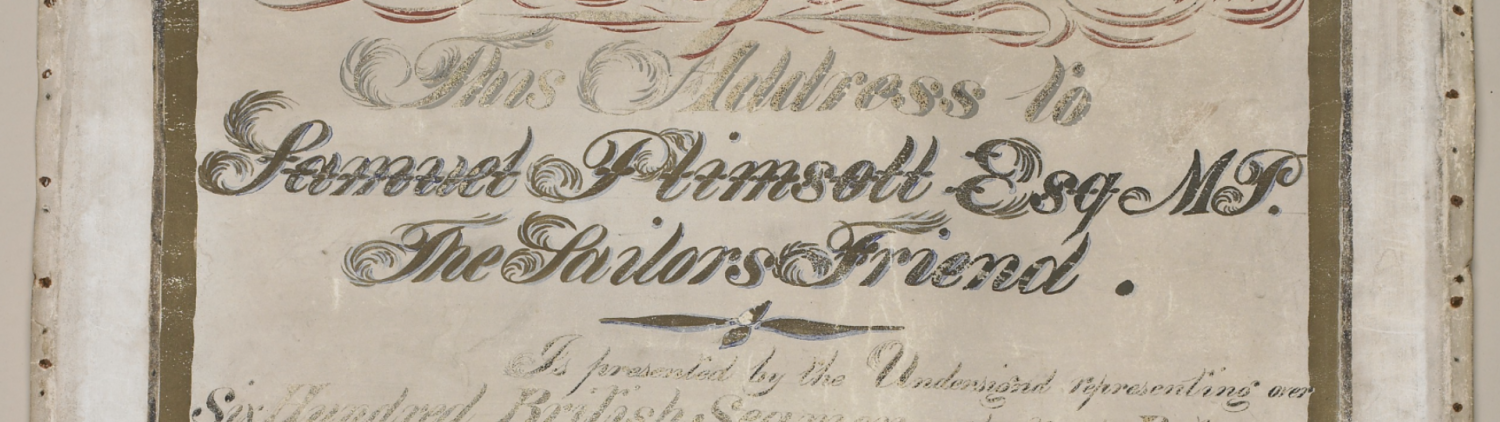 This Address to
Samuel Plimsoll Esq M.P.
The Sailors Friend .
Is presented by the Undersigned representing over
Six Hundred British Seamen